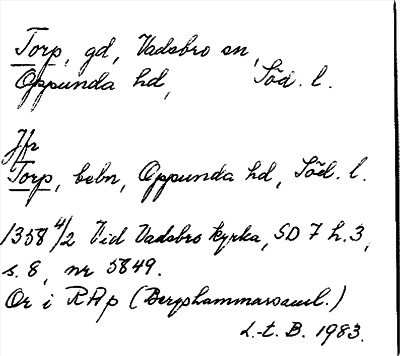 Torp, gd, Vadsbro sn,
Oppunda hd, Söd. l.
Jfr
Torp, bebn, Oppunda hd, Söd. l.
1358 4/2 Vid Vadsbro kyrka, SD 7 h. 3,
s. 8, nr 5849.
Or i RAp (Bergshammarsaml.)
L-t. B. 1983.